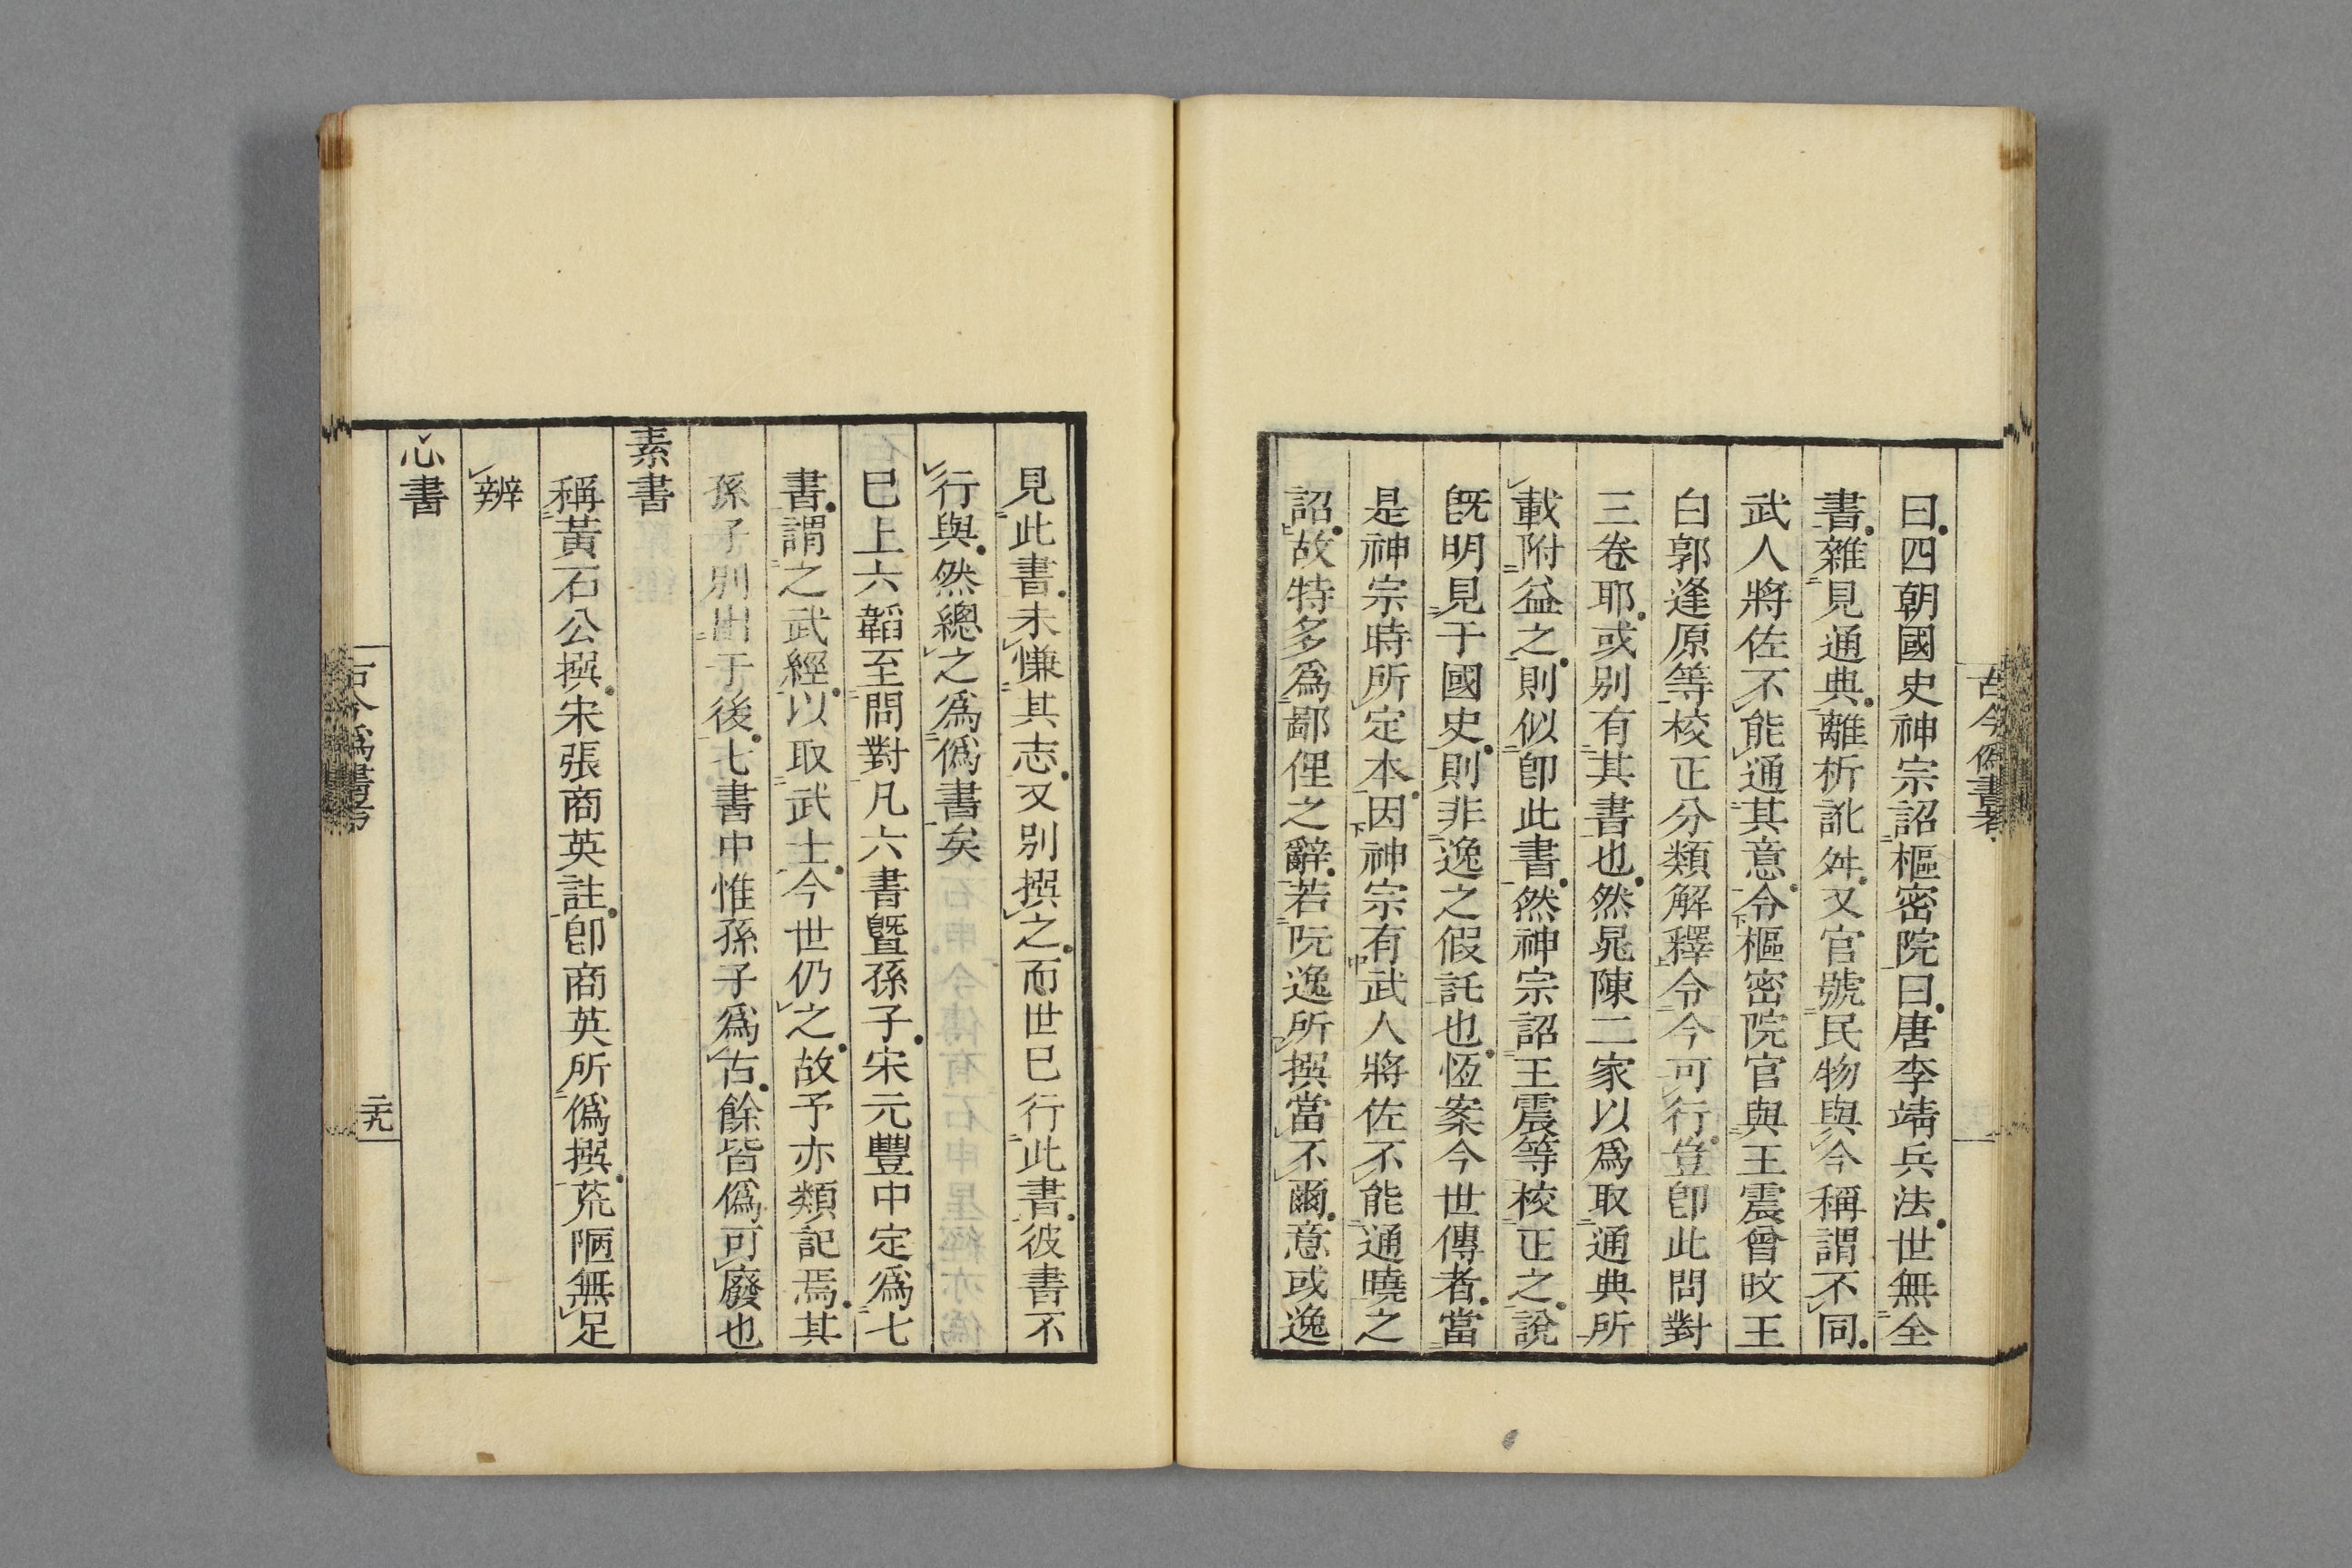 古今僞書考
曰四朝國史神宗詔樞密院曰唐李靖兵法世無全
書雜見通典離析訛舛又官號民物與今稱謂不同
武人將佐不能通其意令樞密院官與王震曾旼王
白郭逢原等校正分類解釋令今可行豈卽此問對
三卷耶或别有其書也然晁陳二家以爲取通典所
載附益之則似卽此書然神宗詔王震等校正之說
旣明見于國史則非逸之假託也恆案今世傳者當
是神宗時所定本因神宗有武人將佐不能通曉之
詔故特多爲鄙俚之辭若阮逸所撰當不爾意或逸
見此書未慊其志又别撰之而世巳行此書彼書不
行與然總之爲僞書矣
巳上六韜至問對凡六書曁孫子宋元豐中定爲七
書謂之武經以取武士今世仍之故予亦類記焉其
孫子别出于後七書中惟孫子爲古餘皆僞可廢也
素書
稱黃石公撰宋張商英註卽商英所僞撰荒陋無足
辨
心書
古今僞書考
二十九